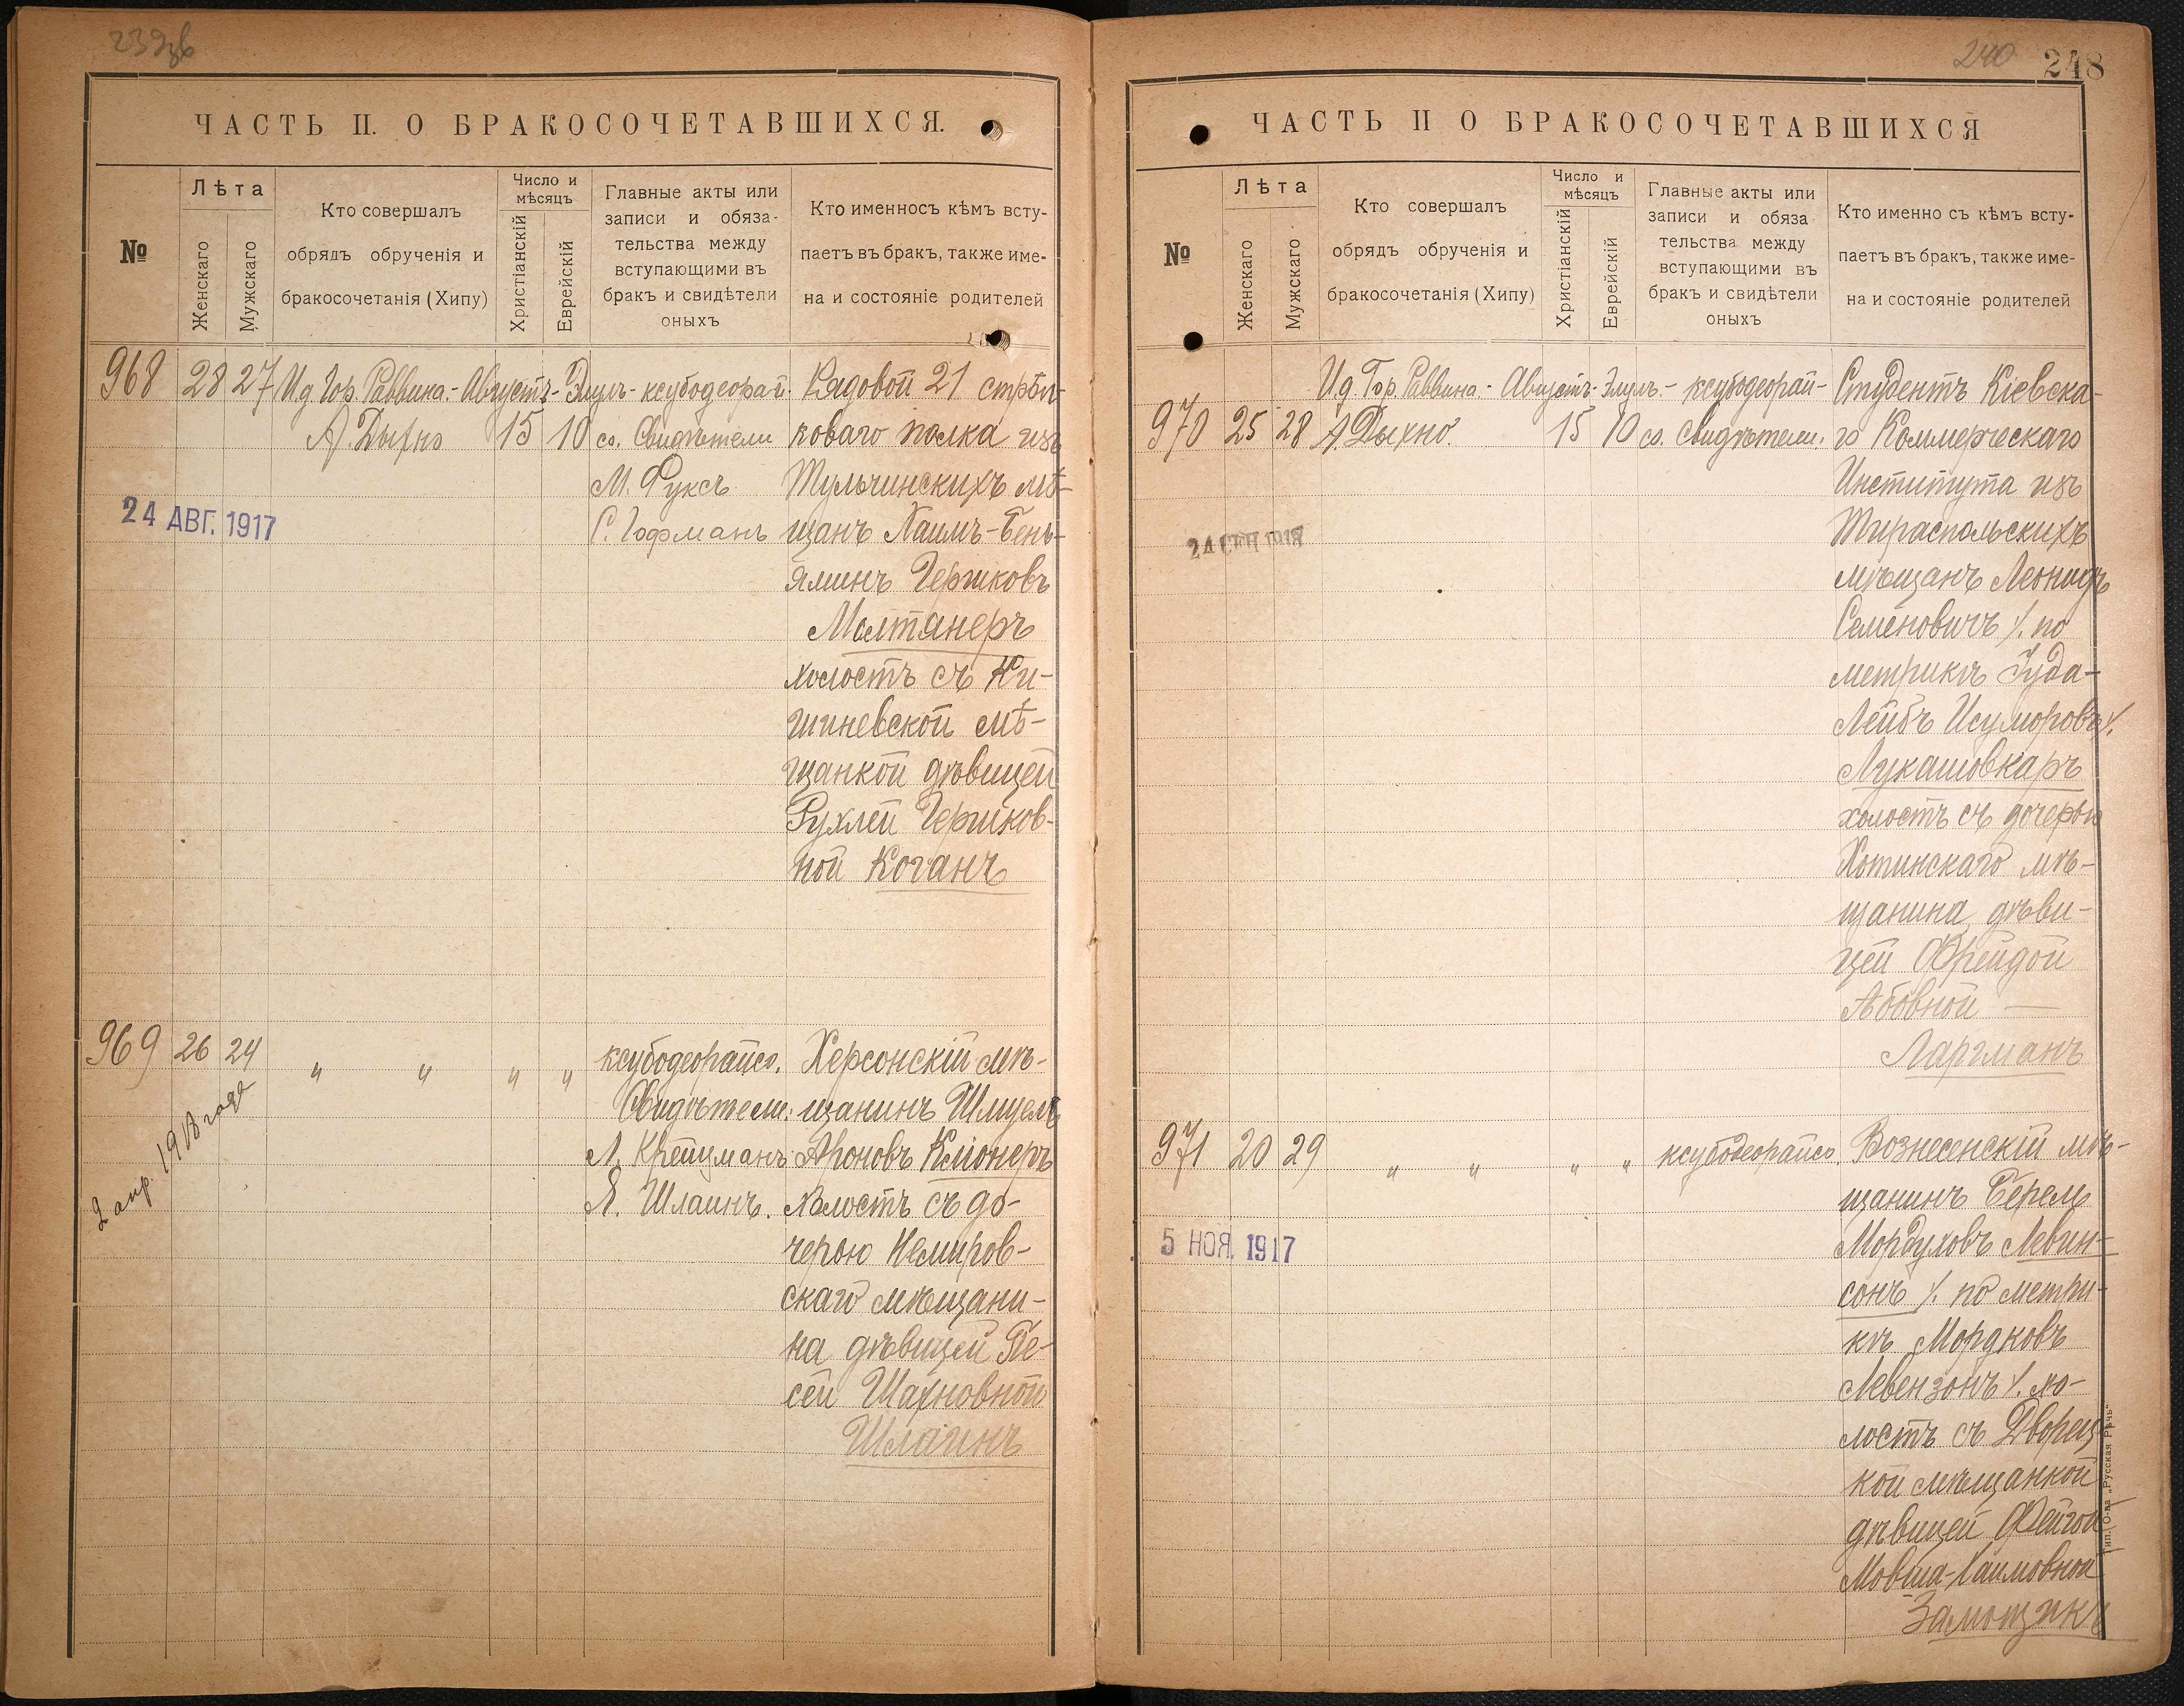 ЧАСТЬ II. О БРАКОСОЧЕТАВШИХСЯ.
№
Лѣта
Женскаго
Мужскаго
Кто совершалъ
обрядъ обрученія и
бракосочетанія (Хипу)
Число и
мѣсяцъ
Христіанскій
Еврейскій
Главные акты или
записи и обяза-
тельства между
вступающими въ
бракъ и свидѣтели
оныхъ
Кто именносъ кѣмъ всту-
паетъ въ бракъ, также име-
на и состояніе родителей
968 28 27 Ид Гор. Раввина.- Августъ- Элулъ-
А. Дыхно 15 10
24 АВГ. 1917
Свидѣтели
М. Фуксъ
С. Гофманъ
Рядовой 21 стрѣл-
коваго полка изъ
Тульчинскихъ мѣ-
щанъ Хаимъ-Бень-
яминъ Гершковъ
Молтянеръ
холостъ съ Ки-
шиневской мѣ-
щанкой дѣвицей
Рухлей Гершков-
ной Коганъ
969 26 24 " " " "
2 апр. 1918 года
Свидѣтели:
Л. Крейцманъ
Я. Шлаинъ.
Херсонскій мѣ-
щанинъ Шмуель
Ароновъ Кліонеръ
холостъ съ до-
черою Немиров-
скаго мѣщани-
на дѣвицей Пе-
сей Шахновной
Шлаинъ
240 248
ЧАСТЬ II О БРАКОСОЧЕТАВШИХСЯ
№
Лѣта
Женскаго
Мужскаго
Кто совершалъ
обрядъ обрученія и
бракосочетанія (Хипу)
Число и
мѣсяцъ
Христіанскій
Еврейскій
Главные акты или
записи и обяза
тельства между
вступающими въ
бракъ и свидѣтели
оныхъ
Кто именно съ кѣмъ всту-
паетъ въ бракъ, также име-
на и состояніе родителей
Ид Гор. Раввина.- Августъ- Элулъ-
970 25 28 А. Дыхно. 15 10
Свидѣтели.
24 СЕН 1918
Студентъ Кіевска-
го Коммерческаго
Института изъ
Тираспольскихъ
мѣщанъ Леонидъ
Семеновичъ /. по
метрикѣ Іуда-
Лейбъ Исуморовъ/.
Лукашовкаръ
холостъ съ дочерью
Хотинскаго мѣ-
щанина дѣви-
цей Фрейдой
Абовной —
Ларгманъ
971 20 29 " " " "
5 НОЯ. 1917
Вознесенскій мѣ-
щанинъ Берель
Мордуховъ Левин-
сонъ /. по метри-
кѣ Мордковъ
Левензонъ /. хо-
лостъ съ Дворец-
кой мѣщанкой
дѣвицей Фейгой
Мовша-Хаимовной
Замощикъ
Тип. О-ва „Русская Рѣчь“